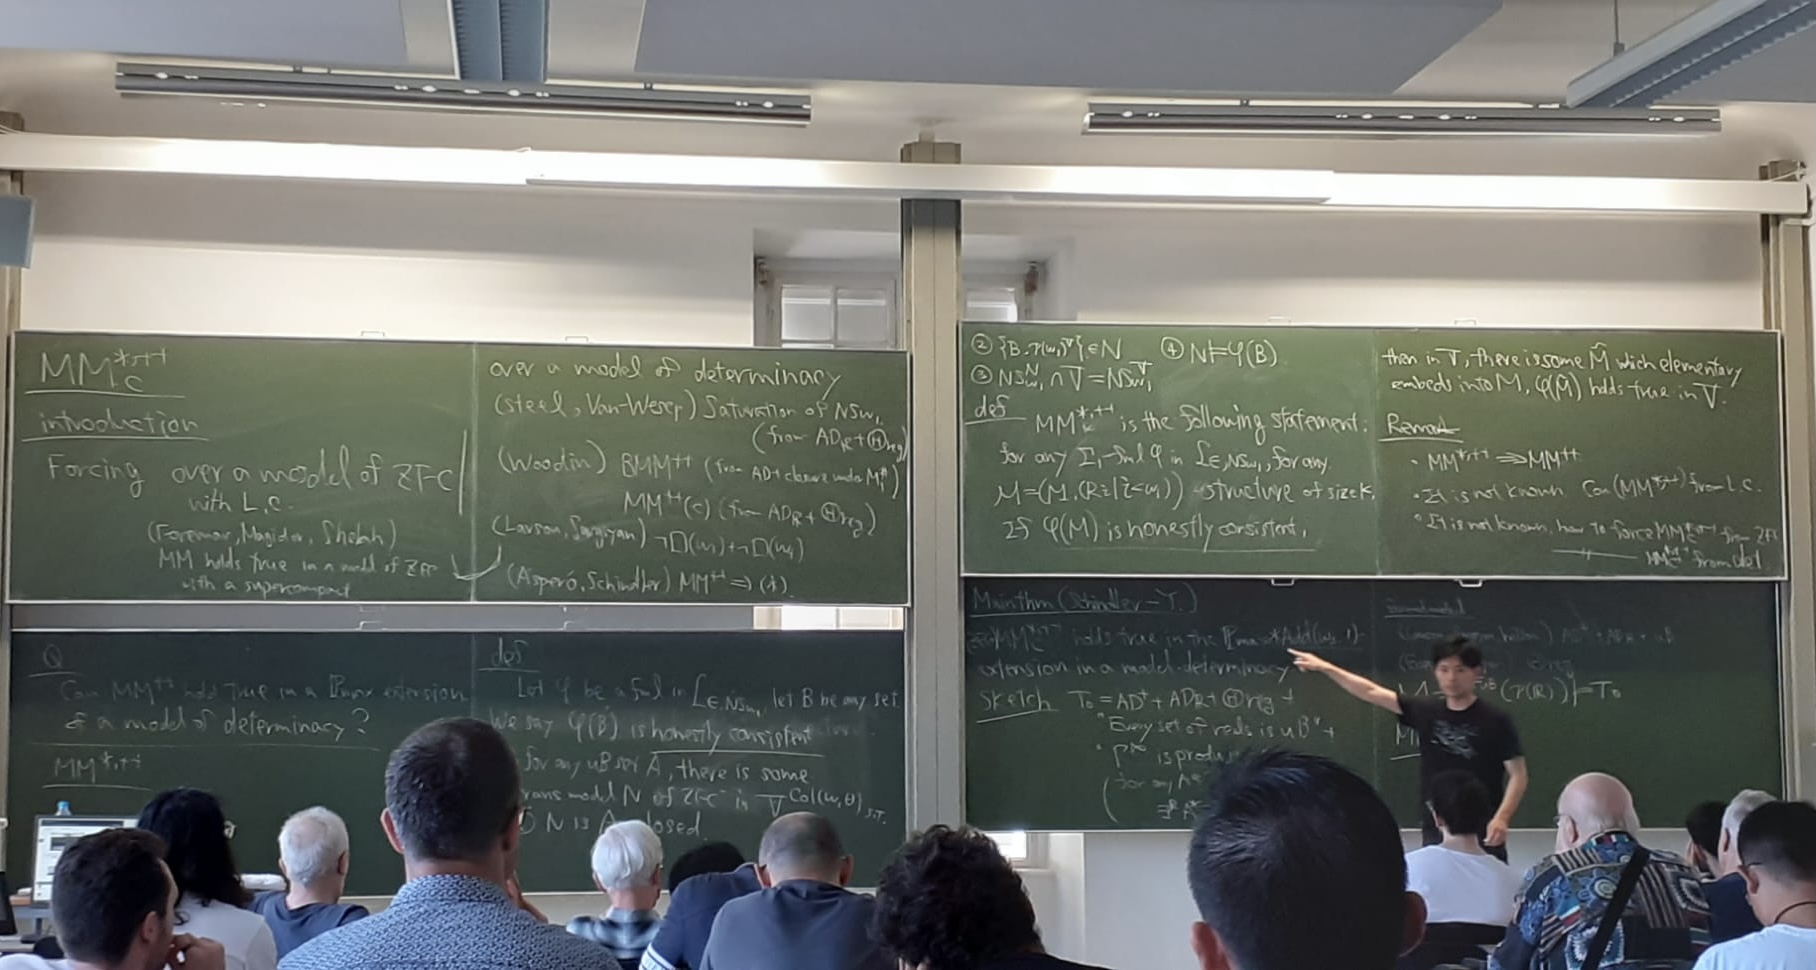 MM_c^{*,++}
introduction
Forcing over a model of ZFC
with L.C.
(Foreman, Magidor, Shelah)
MM holds true in a model of ZFC
with a supercompact
over a model of determinacy
(Steel, Van-Wesep) Saturation of NS_{ω_1}
(from AD_R + Θ reg)
(Woodin) BMM^{++} (from AD + closure under M_ω^#)
MM^{++}(c) (from AD_R + Θ reg)
(Larson, Sargsyan) ¬□(ω_3) + ¬□(ω_4)
(Asperó, Schindler) MM^{++} ⇒ (*).
Q
Can MM^{++} hold true in a Pmax extension
of a model of determinacy?
MM^{*,++}
def
Let φ be a fml in L_{∈,NS_{ω_1}}, let B be any set.
We say φ(B) is honestly consistent
for any uB set A, there is some
trans model N of ZFC^- in V^{Col(ω,θ)} s.t.
① N is A closed.
② {B, P(ω_1)^V} ∈ N ④ N ⊨ φ(B).
③ NS_{ω_1}^N ∩ V = NS_{ω_1}^V
def
MM_κ^{*,++} is the following statement.
for any Σ_1-fml φ in L_{∈,NS_{ω_1}}, for any
M = (M, (R_i | i<ω_1)) - structure of size κ,
If φ(M) is honestly consistent,
then in V, there is some M̄ which elementary
embeds into M, φ(M̄) holds true in V.
Remark
· MM^{*,++} ⇒ MM^{++}
· It is not known Con(MM^{*,++}) from L.C.
· It is not known, how to force MM_c^{*,++} from ZFC
Main thm (Schindler - Y.)
MM_c^{*,++} holds true in the Pmax * Add(ω_3, 1)
extension in a model determinacy
Sketch T_0 = AD^+ + AD_R + Θ reg +
"Every set of reals is uB" +
(P(R)) ⊨ T_0